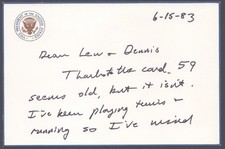 6-15-83
Dear Lew & Dennis
Thanks for the card. 59
seems old, but it isn't.
I've been playing tennis &
running so I've